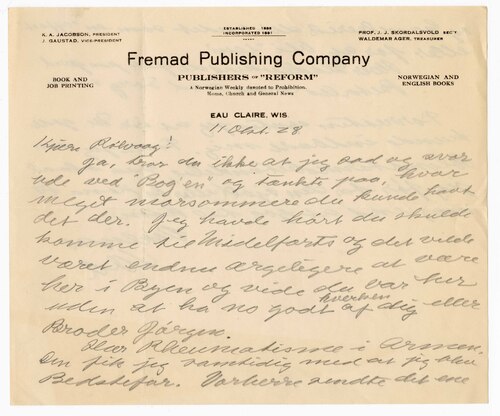 K. A. JACOBSON, PRESIDENT
J. GAUSTAD, VICE-PRESIDENT
ESTABLISHED 1886
INCORPORATED 1891
PROF. J. J. SKORDALSVOLD, SEC'Y
WALDEMAR AGER, TREASURER
Fremad Publishing Company
PUBLISHERS OF "REFORM"
A Norwegian Weekly devoted to Prohibition,
Home, Church and General News
BOOK AND
JOB PRINTING
NORWEGIAN AND
ENGLISH BOOKS
EAU CLAIRE, WIS.
11 Okt. 28
Kjære Rölvaag!
Ja, tror du ikke at jeg sad og svor
ude ved "Bogen" og tænkte paa, hvor
meget morsommere du kunde havt
det der. Jeg havde hört du skulde
komme til Midelforts og det vilde
været endnu ærgeligere at være
her i Byen og vide du var her
uden at ha no godt hverken af dig eller
Broder Jörgen.
Har Rheumatisme i Armen.
Den fik jeg samtidig med at jeg blev
Bedstefar. Vorherre sendte det ene